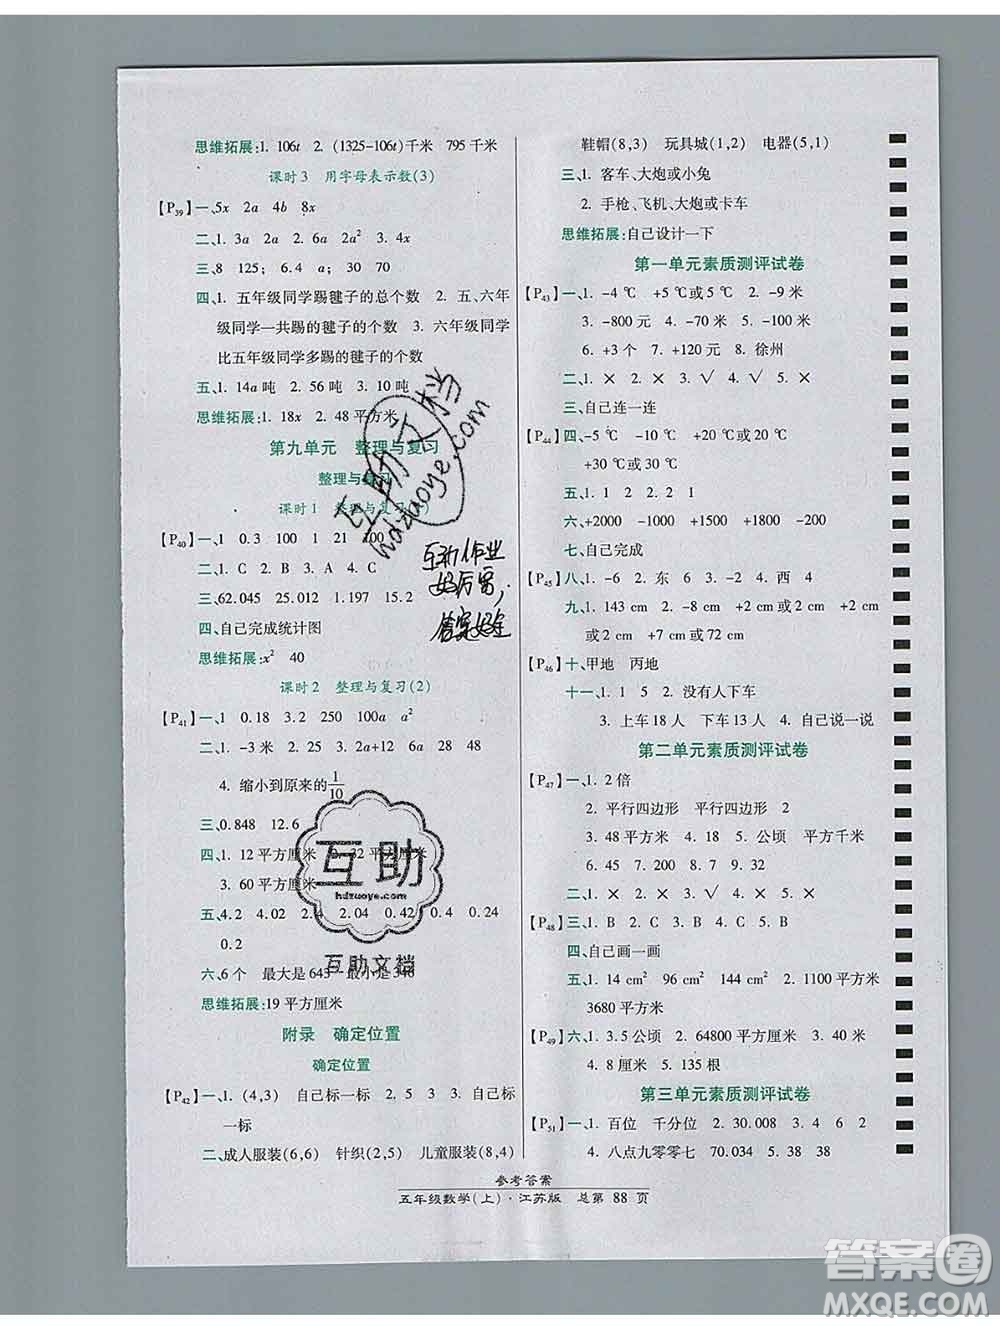 思维拓展:1. 106t 2. (1325-106t)千米 795 千米
课时 3 用字母表示数(3)
【P39】一、5x 2a 4b 8x
二、1. 3a 2a 2. 2a a²
三、8 125; 6.4 a; 30 70
四、1. 五年级同学踢毽子的总个数 2. 五、六年
级同学一共踢的毽子的个数 3. 六年级同学
比五年级同学多踢的毽子的个数
五、1. 14a 吨 2. 56 吨 3. 10 吨
思维拓展:1. 18x 2. 48 平方米
第九单元 整理与复习
整理与复习
课时 1 整理与复习(1)
【P40】一、1 0.3 100 1 21 100
二、1. C 2. B 3. A 4. C 5. C
三、62.045 25.012 1.197 15.2
四、自己完成统计图
思维拓展:x² 40
课时 2 整理与复习(2)
【P41】一、1 0.18 3.2 250 100a a²
二、1. -3 米 2. 10 3. 2a+12 6a 28 48
4. 缩小到原来的1/10
三、0.848 12.6
四、1. 12 平方厘米 32 平方厘米
3. 60 平方厘米
五、4.2 4.02 4 2.04 0.42 0.4 0.24
0.2
六、6 个 最大是 643 最小是 346
思维拓展:19 平方厘米
附录 确定位置
确定位置
【P42】一、1. (4,3) 自己标一标 2. 5 3 3. 自己标
一标
二、成人服装(6,6) 针织(2,5) 儿童服装(8,4)
鞋帽(8,3) 玩具城(1,2) 电器(5,1)
三、1. 客车、大炮或小兔
2. 手枪、飞机、大炮或卡车
思维拓展:自己设计一下
第一单元素质测评试卷
【P43】一、1. -4 ℃ +5 ℃或 5 ℃ 2. -9 米
3. -800 元 4. -70 米 5. -100 米
6. +3 个 7. +120 元 8. 徐州
二、1. × 2. × 3. √ 4. √ 5. ×
三、自己连一连
【P44】四、-5 ℃ -10 ℃ +20 ℃或 20 ℃
+30 ℃或 30 ℃
五、1. A 2. C 3. B 4. C 5. C
六、+2000 -1000 -1500 +1800 +2500
七、自己完成
【P45】八、1. -6 2. 东 6 3. -2 4. 西 4
九、1. 143 cm 2. -8 cm +2 cm或 2 cm +2 cm
或 2 cm +7 cm 或 72 cm
【P46】十、甲地 丙地
十一、1. 1 5 2. 没有人下车
3. 上车 18 人 下车 13 人 4. 自己说一说
第二单元素质测评试卷
【P47】一、1. 2 倍
2. 平行四边形 平行四边形 2
3. 48 平方米 4. 18 5. 公顷 平方千米
6. 45 7. 80 8. 7 9. 32
二、1. × 2. × 3. √ 4. × 5. ×
【P48】三、1. B 2. C 3. C 4. B 5. B
四、自己画一画
五、1. 14 cm² 96 cm² 144 cm² 2. 1100 平方米
3680 平方米
【P49】六、1. 3.5 公顷 2. 64800 平方厘米 3. 40 米
4. 8 厘米 5. 135 根
第三单元素质测评试卷
【P51】一、1. 百位 千分位 2. 30.008 3. 4 6 2
4. 八点九零零七 70.034 5. 38 38
参考答案
五年级数学(上)·江苏版 总第 88 页
互助文档
hdzuoye.com
互动作业
好厉害,
答案好全
互助
hdzuoye.com
互助文档
答案圈
MXQE.COM